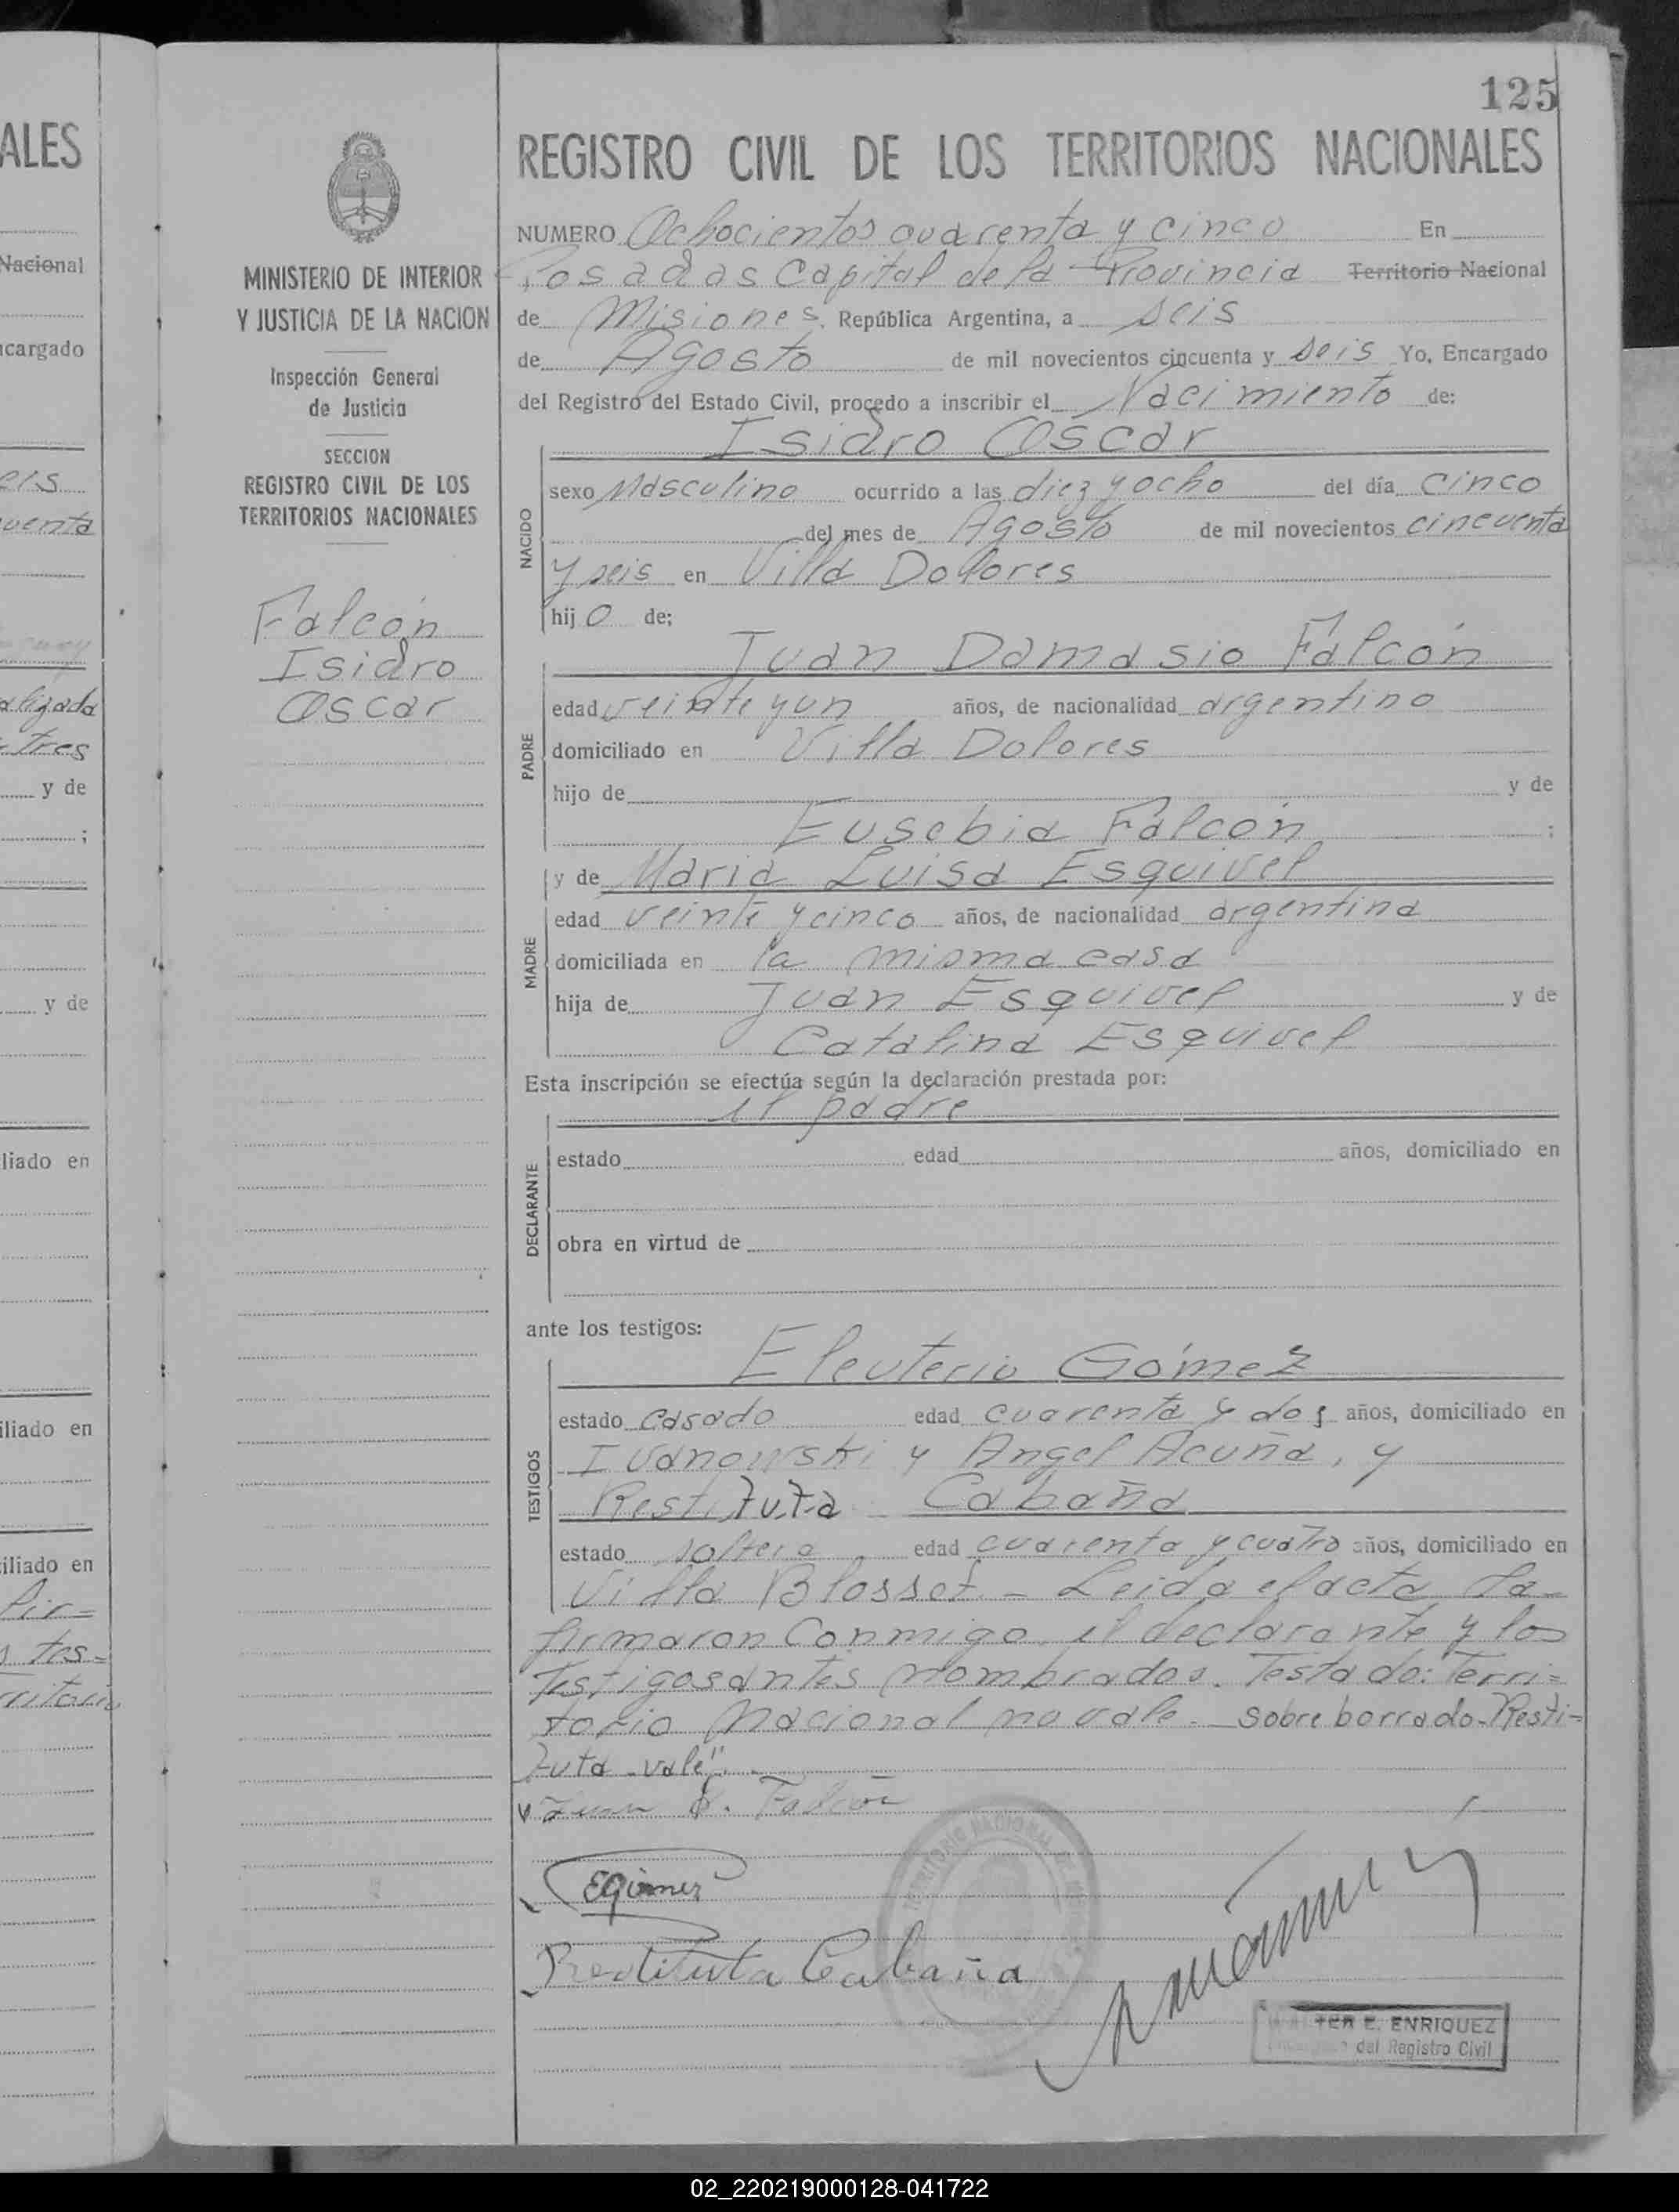 ALES
Nacional
ncargado
eis
cuenta
alizada
tres
y de
;
y de
liado en
iliado en
iliado en
tes=
125
MINISTERIO DE INTERIOR
Y JUSTICIA DE LA NACION
Inspección General
de Justicia
SECCION
REGISTRO CIVIL DE LOS
TERRITORIOS NACIONALES
Falcón
Isidro
Oscar
REGISTRO CIVIL DE LOS TERRITORIOS NACIONALES
NUMERO Ochocientos cuarenta y cinco En
Posadas Capital de la Provincia Territorio Nacional
de Misiones República Argentina, a seis
de Agosto de mil novecientos cincuenta y seis Yo, Encargado
del Registro del Estado Civil, procedo a inscribir el Nacimiento de:
Isidro Oscar
NACIDO
sexo Masculino ocurrido a las diez y ocho del día cinco
del mes de Agosto de mil novecientos cincuenta
y seis en Villa Dolores
hij o de;
Juan Damasio Falcón
PADRE
edad veinte y un años, de nacionalidad argentino
domiciliado en Villa Dolores
hijo de y de
Eusebia Falcón ;
y de Maria Luisa Esquivel
MADRE
edad veinte y cinco años, de nacionalidad argentina
domiciliada en la misma casa
hija de Juan Esquivel y de
Catalina Esquivel
Esta inscripción se efectúa según la declaración prestada por:
el padre
DECLARANTE
estado edad años, domiciliado en
obra en virtud de
ante los testigos:
Eleuterio Gómez
TESTIGOS
estado casado edad cuarenta y dos años, domiciliado en
Ivanowski y Angel Acuña, y
Restituta Cabaña
estado soltera edad cuarenta y cuatro años, domiciliado en
Villa Blosset - Leida el acta la
firmaron conmigo el declarante y los
testigos antes nombrados. Testado: Terri=
torio Nacional no vale. sobre borrado-Resti=
tuta-vale".
Juan D. Falcón
EGómez
Restituta Cabaña
TERRITORIO NACIONAL
TER E. ENRIQUEZ
del Registro Civil
02_220219000128-041722